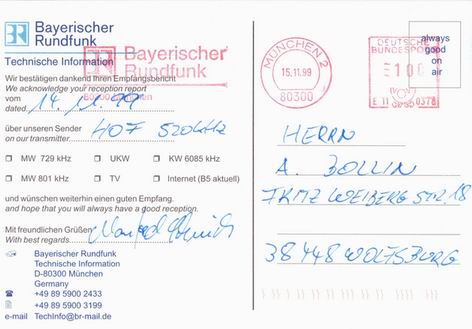 Bayerischer
Rundfunk
Technische Information
Wir bestätigen dankend Ihren Empfangsbericht
We acknowledge your reception report
vom
dated 14.11.99
über unseren Sender
on our transmitter.
☐ MW 729 kHz ☐ UKW ☐ KW 6085 kHz
☐ MW 801 kHz ☐ TV ☐ Internet (B5 aktuell)
und wünschen weiterhin einen guten Empfang.
and hope that you will always have a good reception.
Mit freundlichen Grüßen
With best regards
Bayerischer Rundfunk
Technische Information
D-80300 München
Germany
+49 89 5900 2433
+49 89 5900 3199
e-mail TechInfo@br-mail.de
Bayerischer
Rundfunk
MÜNCHEN 2
15.11.99
80300
DEUTSCHE
BUNDESPOST
100
E 11
0378
always
good
on
air
HERRN
A. BOLLIN
FRITZ WEIBERG STR. 18
38448 WOLFSBURG